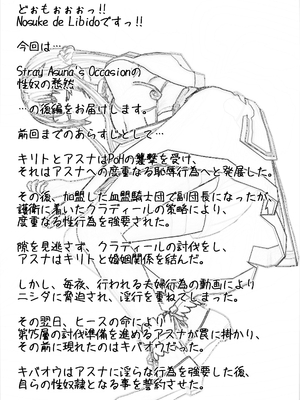 どぉもぉぉぉっ!!
Nosuke de Libidoですっ!!
今回は…
Stray Asuna's Occasionの
性奴の愁然
…の後編をお届けします。
前回までのあらすじとして…
キリトとアスナはPoHの襲撃を受け、
それはアスナへの度重なる恥辱行為へと発展した。
その後、加盟した血盟騎士団で副団長になったが、
護衛に着いたクラディールの策略により、
度重なる性行為を強要された。
隙を見逃さず、クラディールの討伐をし、
アスナはキリトと婚姻関係を結んだ。
しかし、毎夜、行われる夫婦行為の動画により
ニシダに脅迫され、淫行を重ねてしまった。
その翌日、ヒースの命により
第75層の討伐準備を進めるアスナが罠に掛かり、
その前に現れたのはキバオウだった。
キバオウはアスナに淫らな行為を強要した後、
自らの性奴隷となる事を誓約させた。